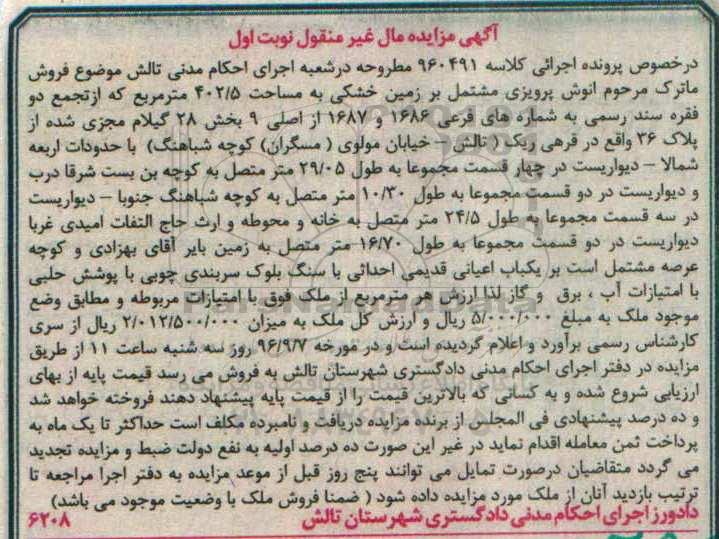 آگهی مزایده مال غیر منقول نوبت اول
درخصوص پرونده اجرائی کلاسه ۹۶۰۴۹۱ مطروحه درشعبه اجرای احکام مدنی تالش موضوع فروش
ماترک مرحوم انوش پرویزی مشتمل بر زمین خشکی به مساحت ۴۰۲/۵ مترمربع که ازتجمع دو
فقره سند رسمی به شماره های فرعی ۱۶۸۶ و ۱۶۸۷ از اصلی ۹ بخش ۲۸ گیلام مجزی شده از
پلاک ۳۶ واقع در قرهی ریک ( تالش – خیابان مولوی ( مسگران) کوچه شباهنگ) با حدودات اربعه
شمالا – دیواریست در چهار قسمت مجموعا به طول ۲۹/۰۵ متر متصل به کوچه بن بست شرقا درب
و دیواریست در دو قسمت مجموعا به طول ۱۰/۳۰ متر متصل به کوچه شباهنگ جنوبا – دیواریست
در سه قسمت مجموعا به طول ۲۴/۵ متر متصل به خانه و محوطه و ارث حاج التفات امیدی غربا
دیواریست در دو قسمت مجموعا به طول ۱۶/۷۰ متر متصل به زمین بایر آقای بهزادی و کوچه
عرصه مشتمل است بر یکباب اعیانی قدیمی احداثی با سنگ بلوک سربندی چوبی با پوشش حلبی
با امتیازات آب ، برق و گاز لذا ارزش هر مترمربع از ملک فوق با امتیازات مربوطه و مطابق وضع
موجود ملک به مبلغ ۵/۰۰۰/۰۰۰ ریال و ارزش کل ملک به میزان ۲/۰۱۲/۵۰۰/۰۰۰ ریال از سری
کارشناس رسمی برآورد و اعلام گردیده است و در مورخه ۹۶/۹/۷ روز سه شنبه ساعت ۱۱ از طریق
مزایده در دفتر اجرای احکام مدنی دادگستری شهرستان تالش به فروش می رسد قیمت پایه از بهای
ارزیابی شروع شده و به کسانی که بالاترین قیمت را از قیمت پایه پیشنهاد دهند فروخته خواهد شد
و ده درصد پیشنهادی فی المجلس از برنده مزایده دریافت و نامبرده مکلف است حداکثر تا یک ماه به
پرداخت ثمن معامله اقدام نماید در غیر این صورت ده درصد اولیه به نفع دولت ضبط و مزایده تجدید
می گردد متقاضیان درصورت تمایل می توانند پنج روز قبل از موعد مزایده به دفتر اجرا مراجعه تا
ترتیب بازدید آنان از ملک مورد مزایده داده شود ( ضمنا فروش ملک با وضعیت موجود می باشد)
دادورز اجرای احکام مدنی دادگستری شهرستان تالش ۶۲۰۸